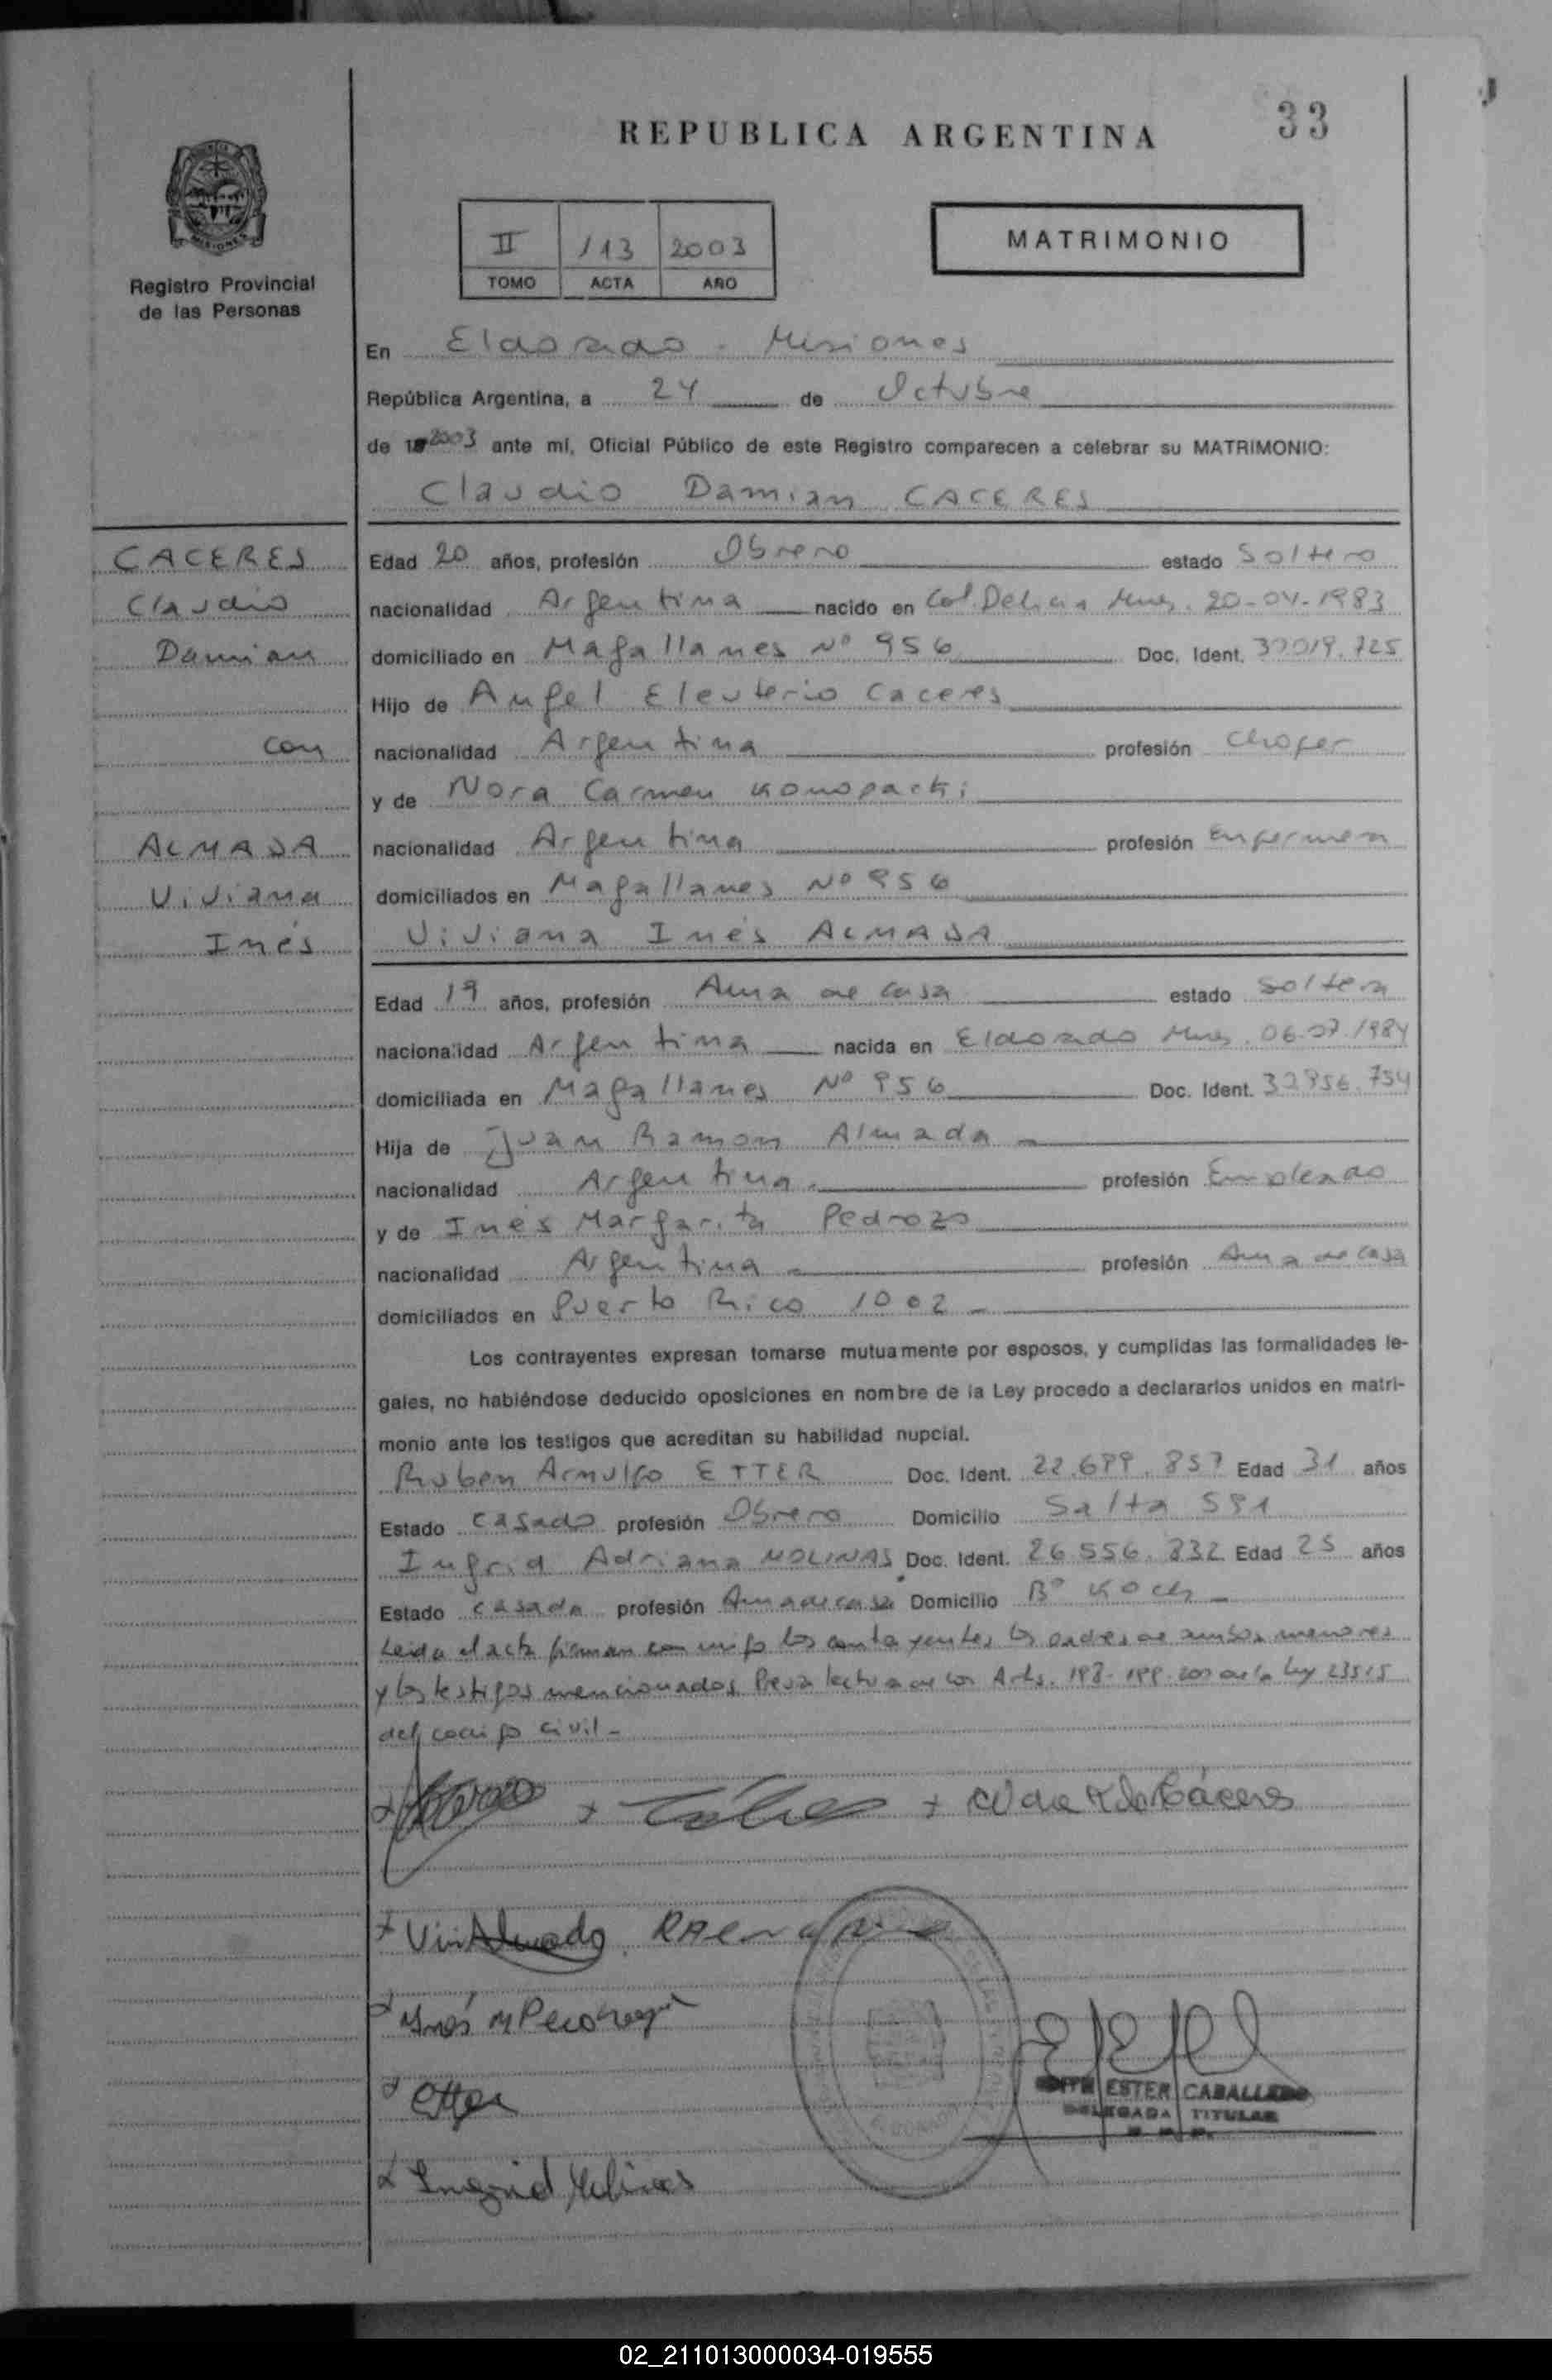 33
REPUBLICA ARGENTINA
MATRIMONIO
II 113 2003
TOMO ACTA AÑO
Registro Provincial
de las Personas
En Eldorado - Misiones
República Argentina, a 24 de Octubre
de 2003 ante mí, Oficial Público de este Registro comparecen a celebrar su MATRIMONIO:
Claudio Damian CACERES
CACERES
Claudio
Damian
con
ALMADA
Viviana
Inés
Edad 20 años, profesión Obrero estado Soltero
nacionalidad Argentina nacido en Col. Delicia Mnes. 20-04-1983
domiciliado en Magallanes Nº 956 Doc. Ident. 30019.725
Hijo de Angel Eleuterio Caceres
nacionalidad Argentina profesión Chofer
y de Nora Carmen Konopacki
nacionalidad Argentina profesión Enfermera
domiciliados en Magallanes Nº 956
Viviana Inés ALMADA
Edad 19 años, profesión Ama de casa estado Soltera
nacionalidad Argentina nacida en Eldorado Mnes. 06-07-1984
domiciliada en Magallanes Nº 956 Doc. Ident. 754
Hija de Juan Ramon Almada
nacionalidad Argentina profesión Empleado
y de Inés Margarita Pedrozo
nacionalidad Argentina profesión Ama de casa
domiciliados en Puerto Rico 1002
Los contrayentes expresan tomarse mutuamente por esposos, y cumplidas las formalidades le-
gales, no habiéndose deducido oposiciones en nombre de la Ley procedo a declararlos unidos en matri-
monio ante los testigos que acreditan su habilidad nupcial.
Ruben Arnulfo ETTER Doc. Ident. 22.699.857 Edad 31 años
Estado Casado profesión Obrero Domicilio Salta 591
Ingrid Adriana MOLINAS Doc. Ident. 26.556.832 Edad 25 años
Estado casada profesión Ama de casa Domicilio Bº Koch
Leida el acta firman conmigo los contrayentes, los padres de ambos menores
y los testigos mencionados, Previa lectura de los Arts. 198-199-200 de la Ley 23515
del codigo civil-
Cáceres
Viv Almada
Inés M Pedrozo
Etter
Ingrid Molinas
ESTER CABALLERO
DELEGADA TITULAR
02_211013000034-019555